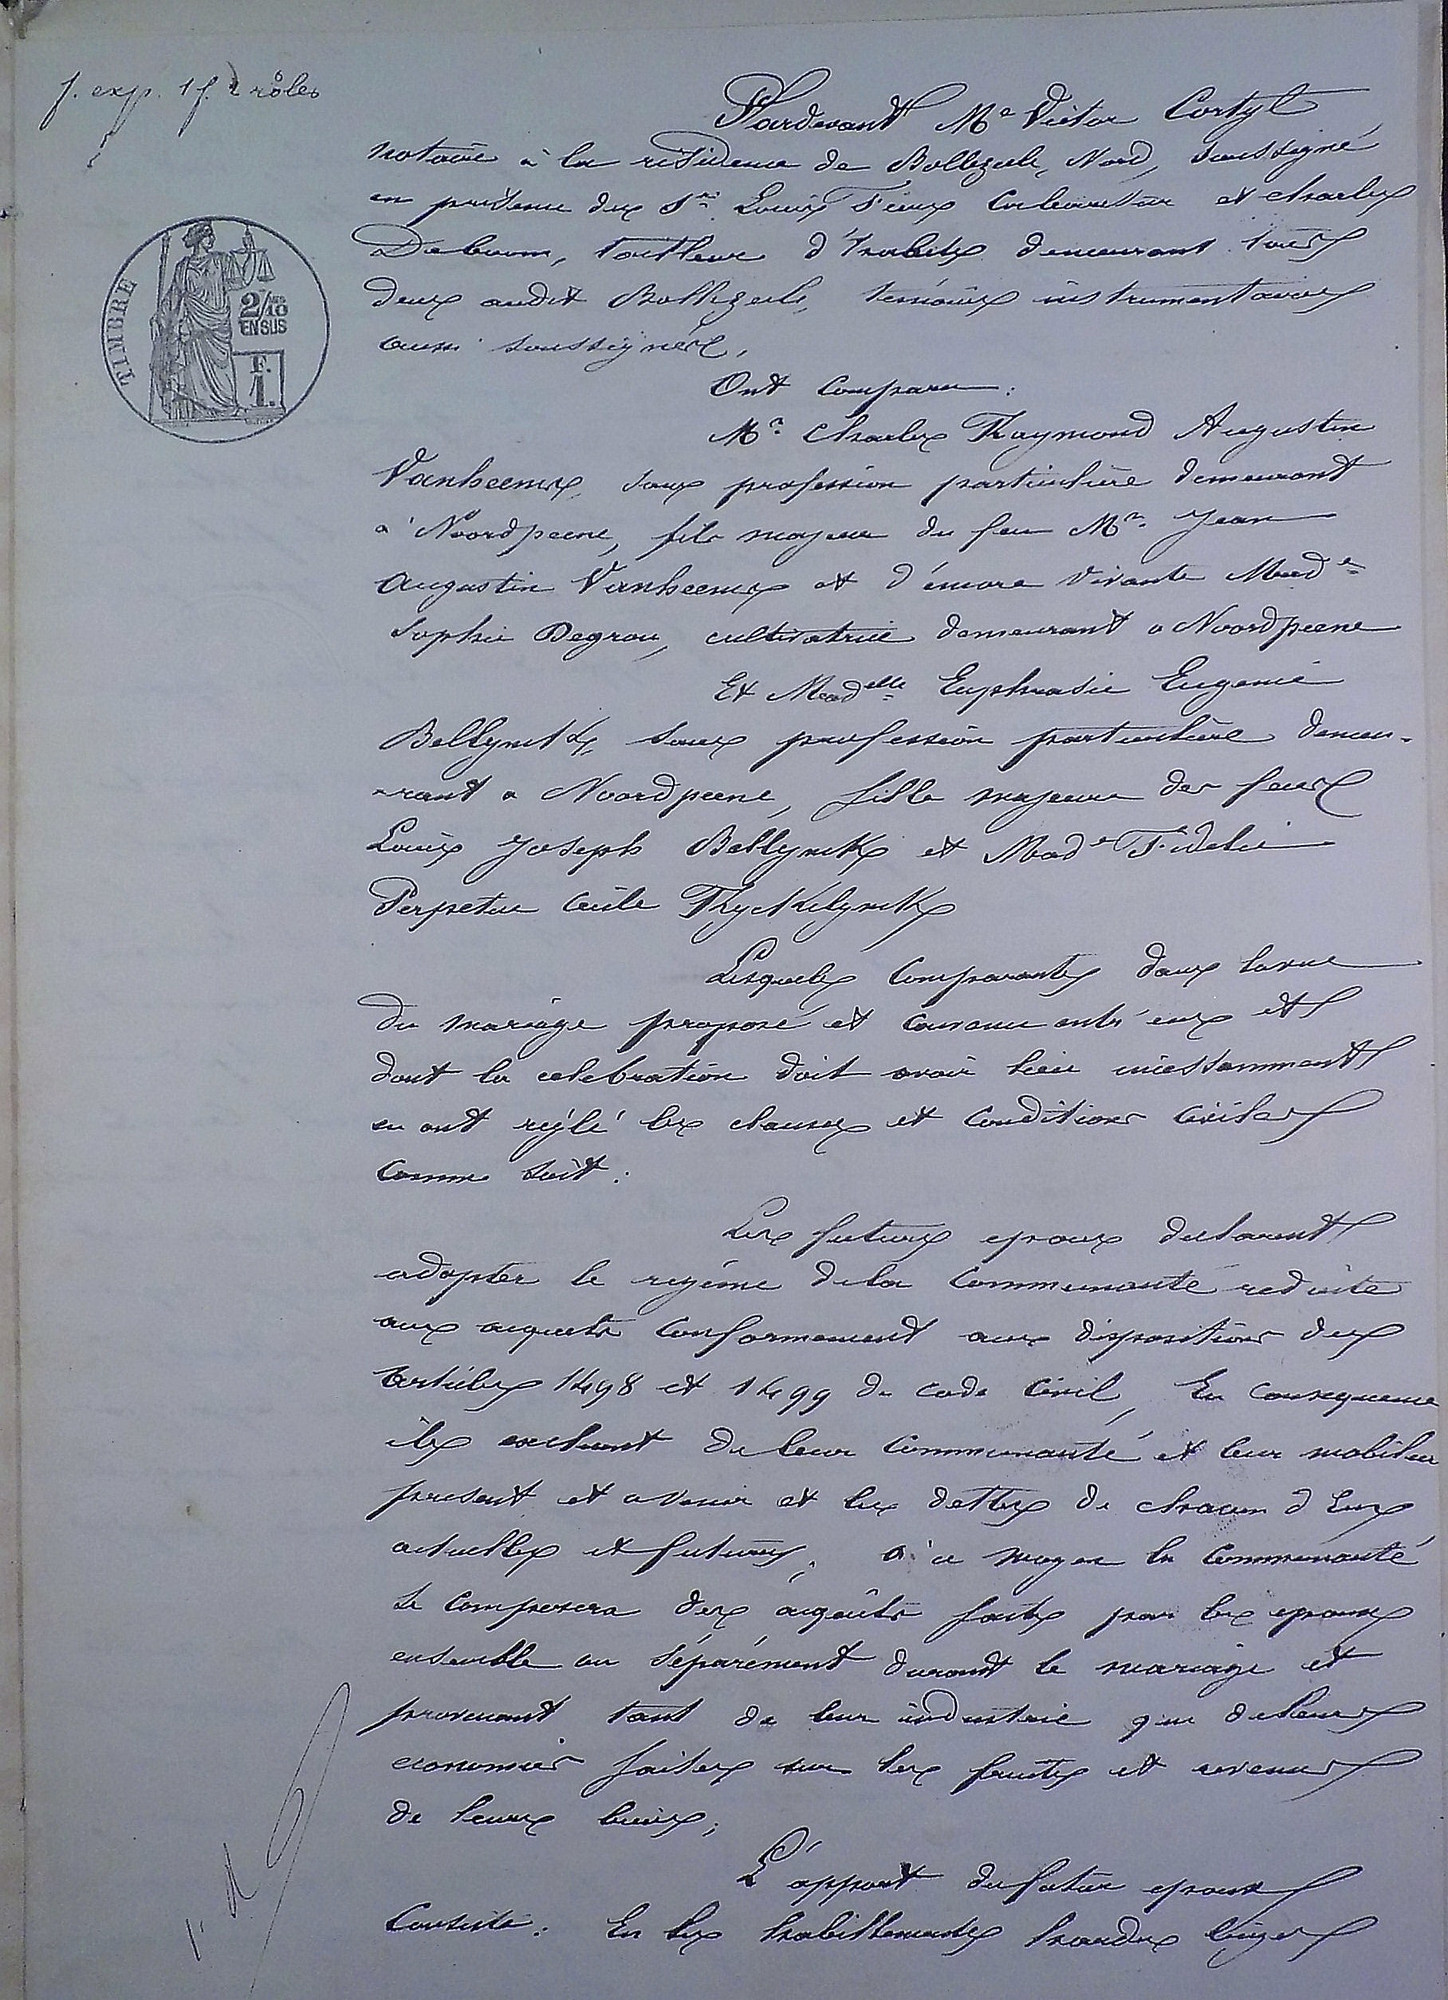 f. exp. 1 f. 2 rôles
TIMBRE
2/10
EN SUS
F.
1.
Pardevant Me Victor Cortyl
notaire à la résidence de Bollezeele, Nord, soussigné
en présence des Srs Louis Fieux Cabaretier et Charles
Deboom, tailleur d'habits demeurant tous
deux audit Bollezeele, témoins instrumentaires
aussi soussignés,
Ont Comparu :
Mr Charles Raymond Augustin
Vanheems, sans profession particulière demeurant
à Noordpeene, fils majeur du feu Mr Jean
Augustin Vanheems et d'encore vivante Made
Sophie Degrou, cultivatrice demeurant a Noordpeene
Et Madelle Euphrasie Eugenie
Bellynck, sans profession particulière demeu-
-rant a Noordpeene, fille majeure des feus
Louis Joseph Bellynck et Made Fidelie
Perpetue Cécile
Lesquels Comparants dans la vue
du mariage proposé et convenu entr'eux et
dont la celebration doit avoir lieu incessamment
en ont réglé les clauses et conditions civiles
comme suit :
Les futurs epoux declarent
adopter le regime de la Communauté reduite
aux acquets Conformement aux dispositions des
articles 1498 et 1499 du code Civil, En consequence
ils excluent de leur Communauté et leur mobilier
present et avenir et les dettes de chacun d'Eux
actuelles et futures. A ce moyen la Communauté
se composera des acquêts faits par les epoux
ensemble ou séparément durant le mariage et
provenant tant de leur industrie que de leurs
economies faites sur les fruits et revenus
de leurs biens ;
L'apport du futur epoux
Consiste : En les habillements hardes linges
1. R